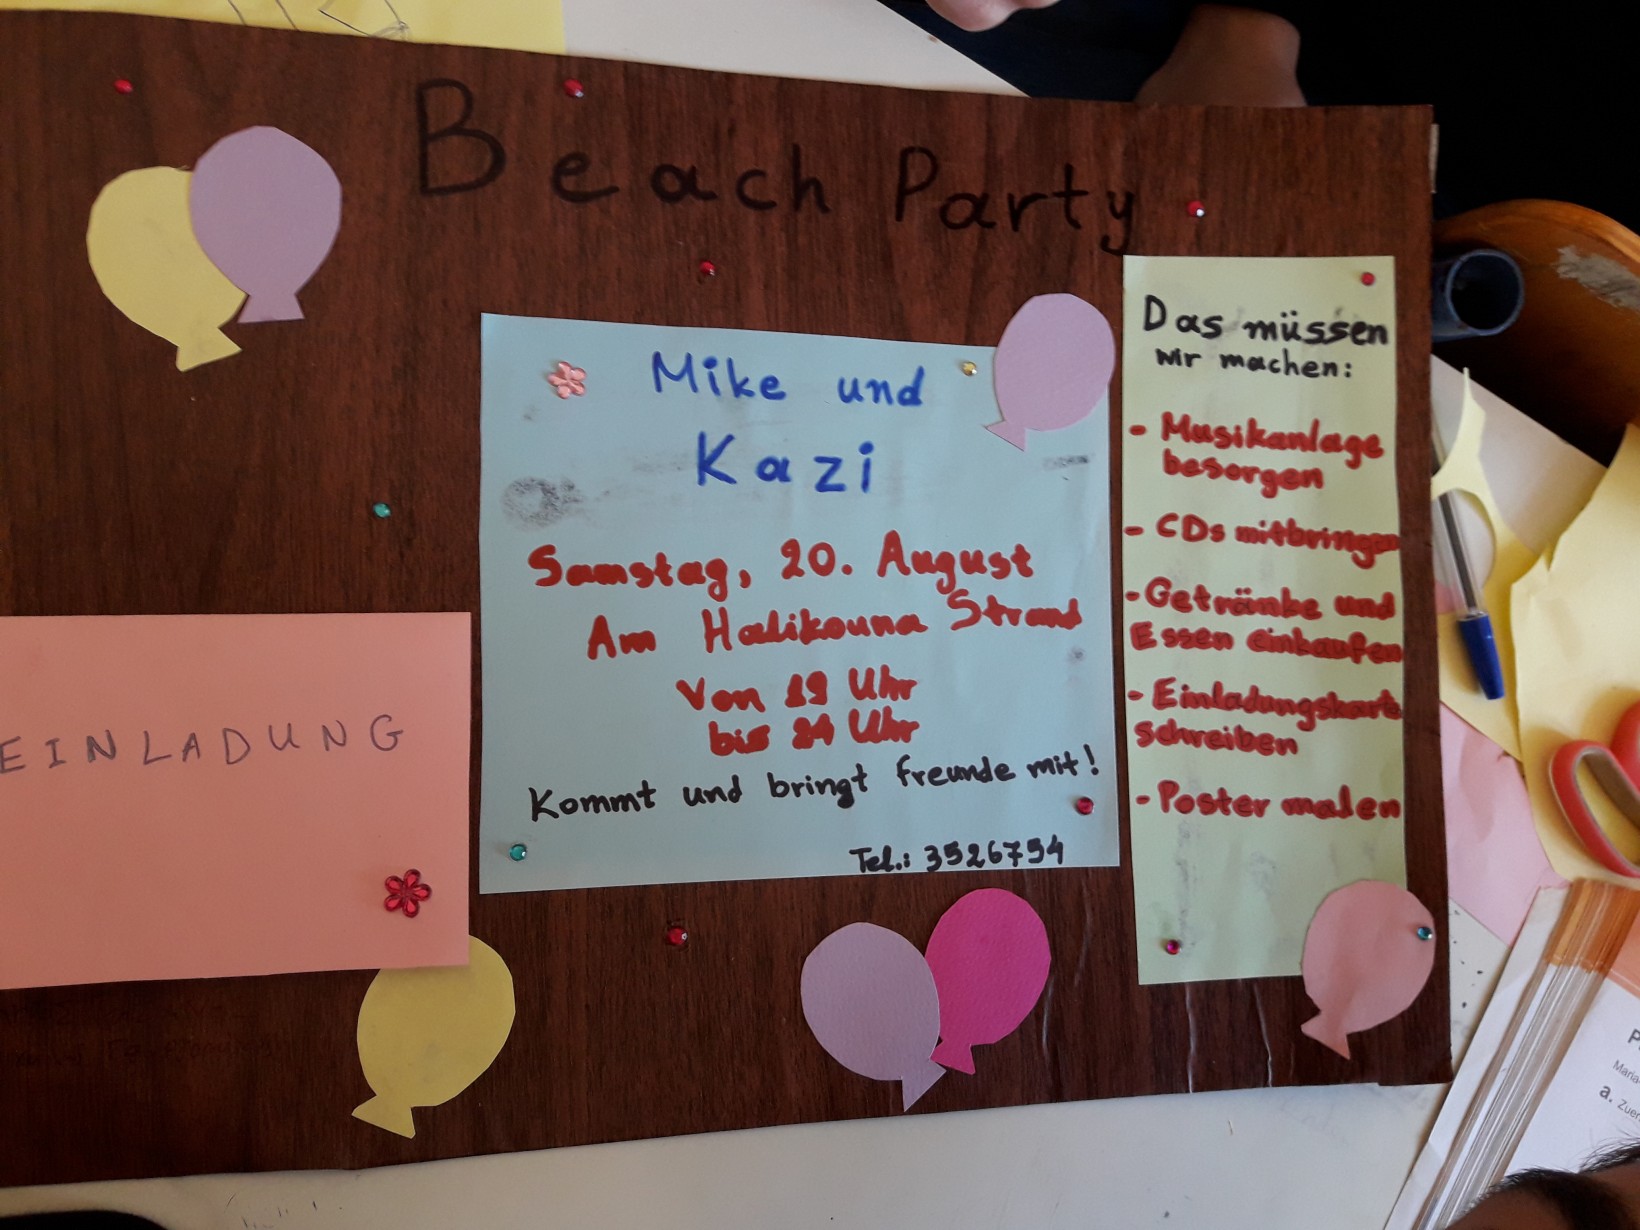 Beach Party
EINLADUNG
Mike und
Kazi
Samstag, 20. August
Am Halikouna Strand
Von 19 Uhr
bis 24 Uhr
Kommt und bringt freunde mit!
Tel.: 3526754
Das müssen
wir machen:
- Musikanlage
besorgen
- CDs mitbringen
- Getränke und
Essen einkaufen
- Einladungskarte
schreiben
- Poster malen
Maria-
a. Zuer